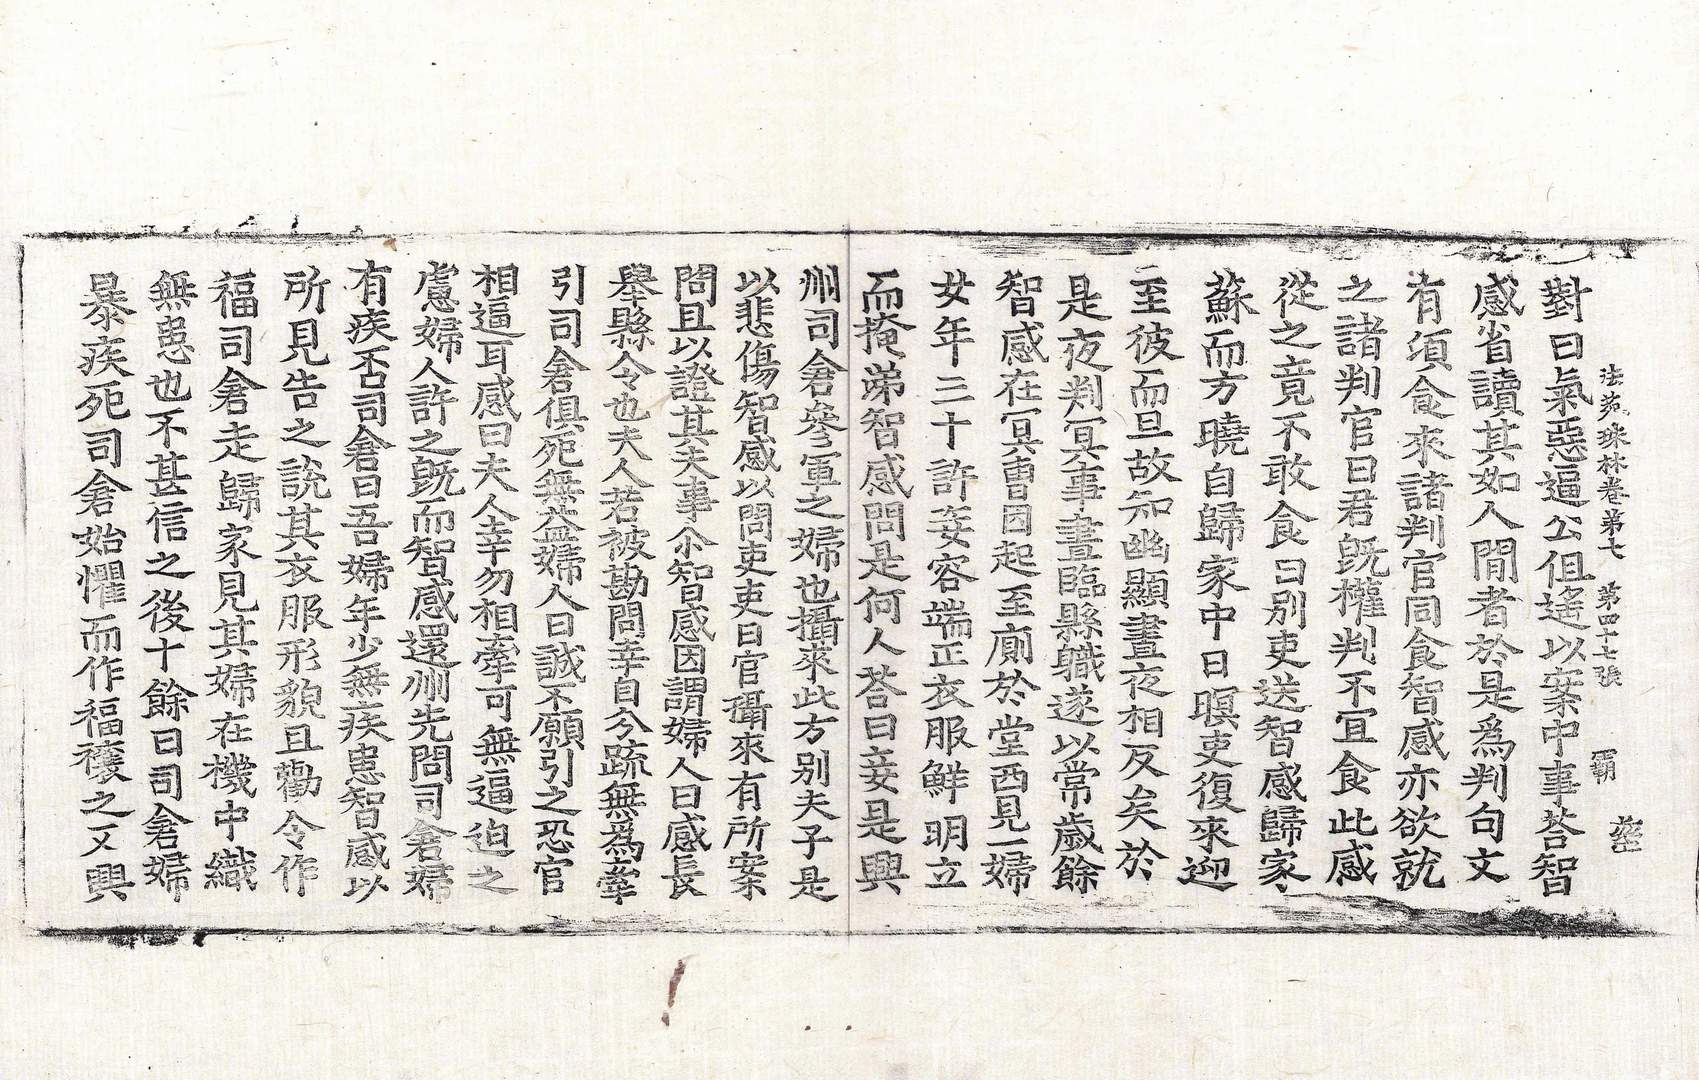 法苑珠林卷第七 第四十七張 覇
對曰氣惡逼公但遥以案中事荅智
感省讀其如人間者於是爲判句文
有湏食來諸判官同食智感亦欲就
之諸判官曰君旣權判不宜食此感
從之竟不敢食日別吏送智感歸家
蘇而方曉自歸家中日暝吏復來迎
至彼而旦故知幽顯晝夜相反矣於
是夜判冥事晝臨縣職遂以常歲餘
智感在冥曹因起至廁於堂西見一婦
女年三十許姿容端正衣服鮮明立
而掩涕智感問是何人荅曰妾是興
州司倉參軍之婦也攝來此方別夫子是
以悲傷智感以問吏吏曰官攝來有所案
問且以證其夫事尒智感因謂婦人曰感長
舉縣令也夫人若被勘問幸自分疏無爲牽
引司倉俱死無益婦人曰誠不願引之恐官
相逼耳感曰夫人幸勿相牽可無逼迫之
慮婦人許之旣而智感還州先問司倉婦
有疾否司倉曰吾婦年少無疾患智感以
所見告之說其衣服形貌且勸令作
福司倉走歸家見其婦在機中織
無患也不甚信之後十餘日司倉婦
暴疾死司倉始懼而作福禳之又興